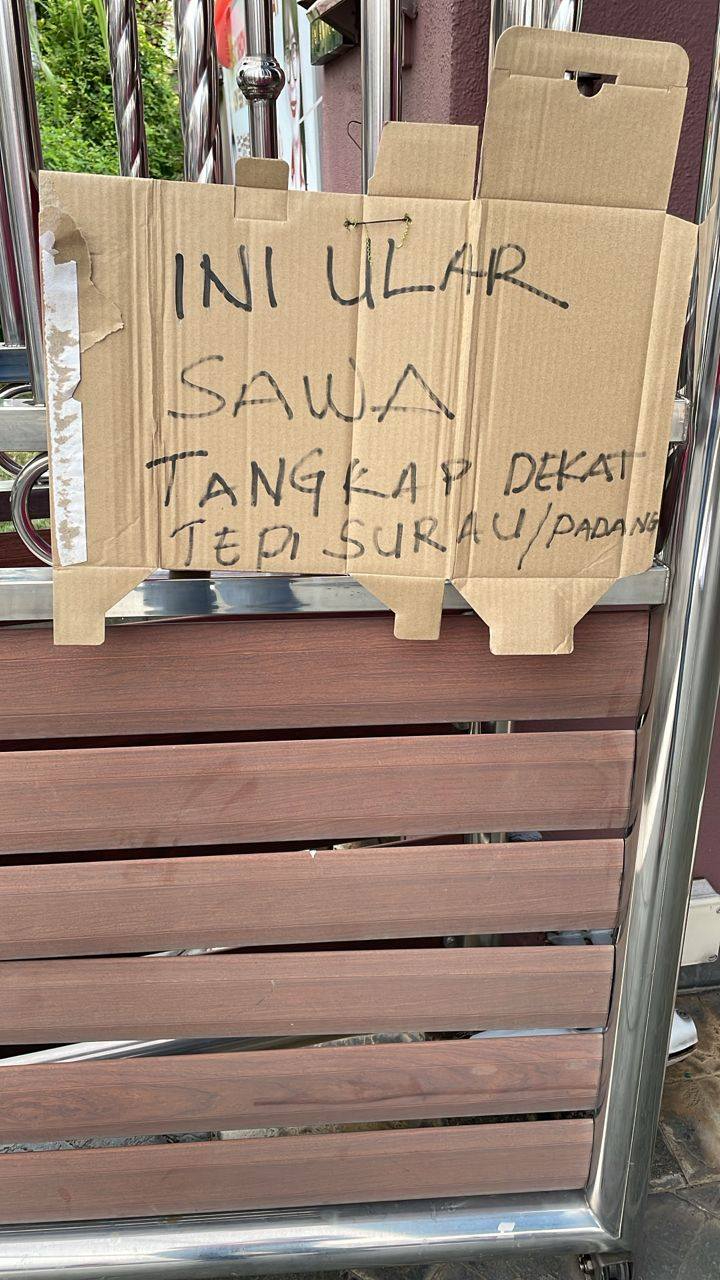 INI ULAR
SAWA
TANGKAP DEKAT
TEPI SURAU/PADANG